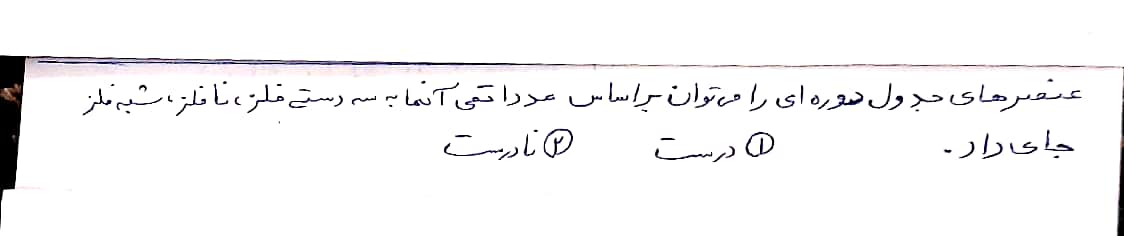 عنصرهای جدول دوره ای را می‌توان براساس عدد اتمی آنها به سه دسته‌ی فلز، نافلز، شبه فلز
جای داد. ① درست ② نادرست